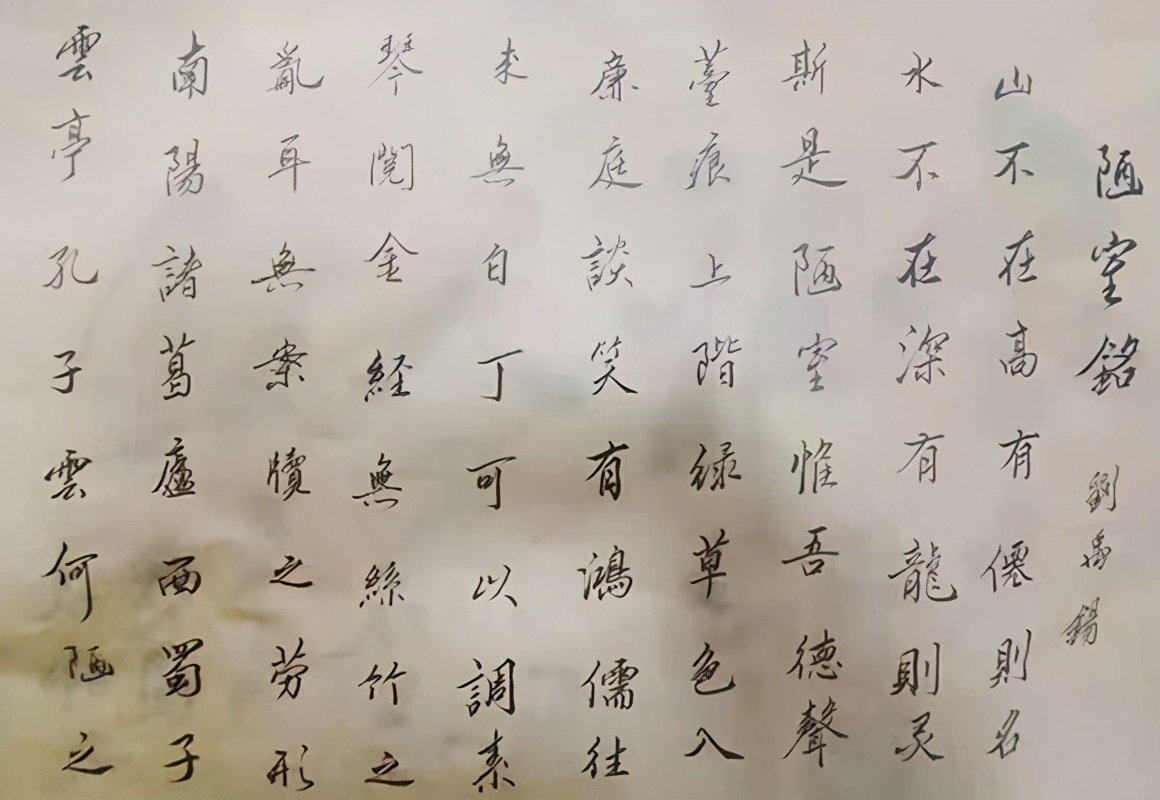 陋室銘 劉禹錫
山不在高有僊則名
水不在深有龍則灵
斯是陋室惟吾德聲
薹痕上階緑草色入
廉庭談笑有鴻儒往
来無白丁可以調素
琴閲金経無絲竹之
亂耳無案牘之劳形
南陽諸葛廬西蜀子
雲亭孔子雲何陋之